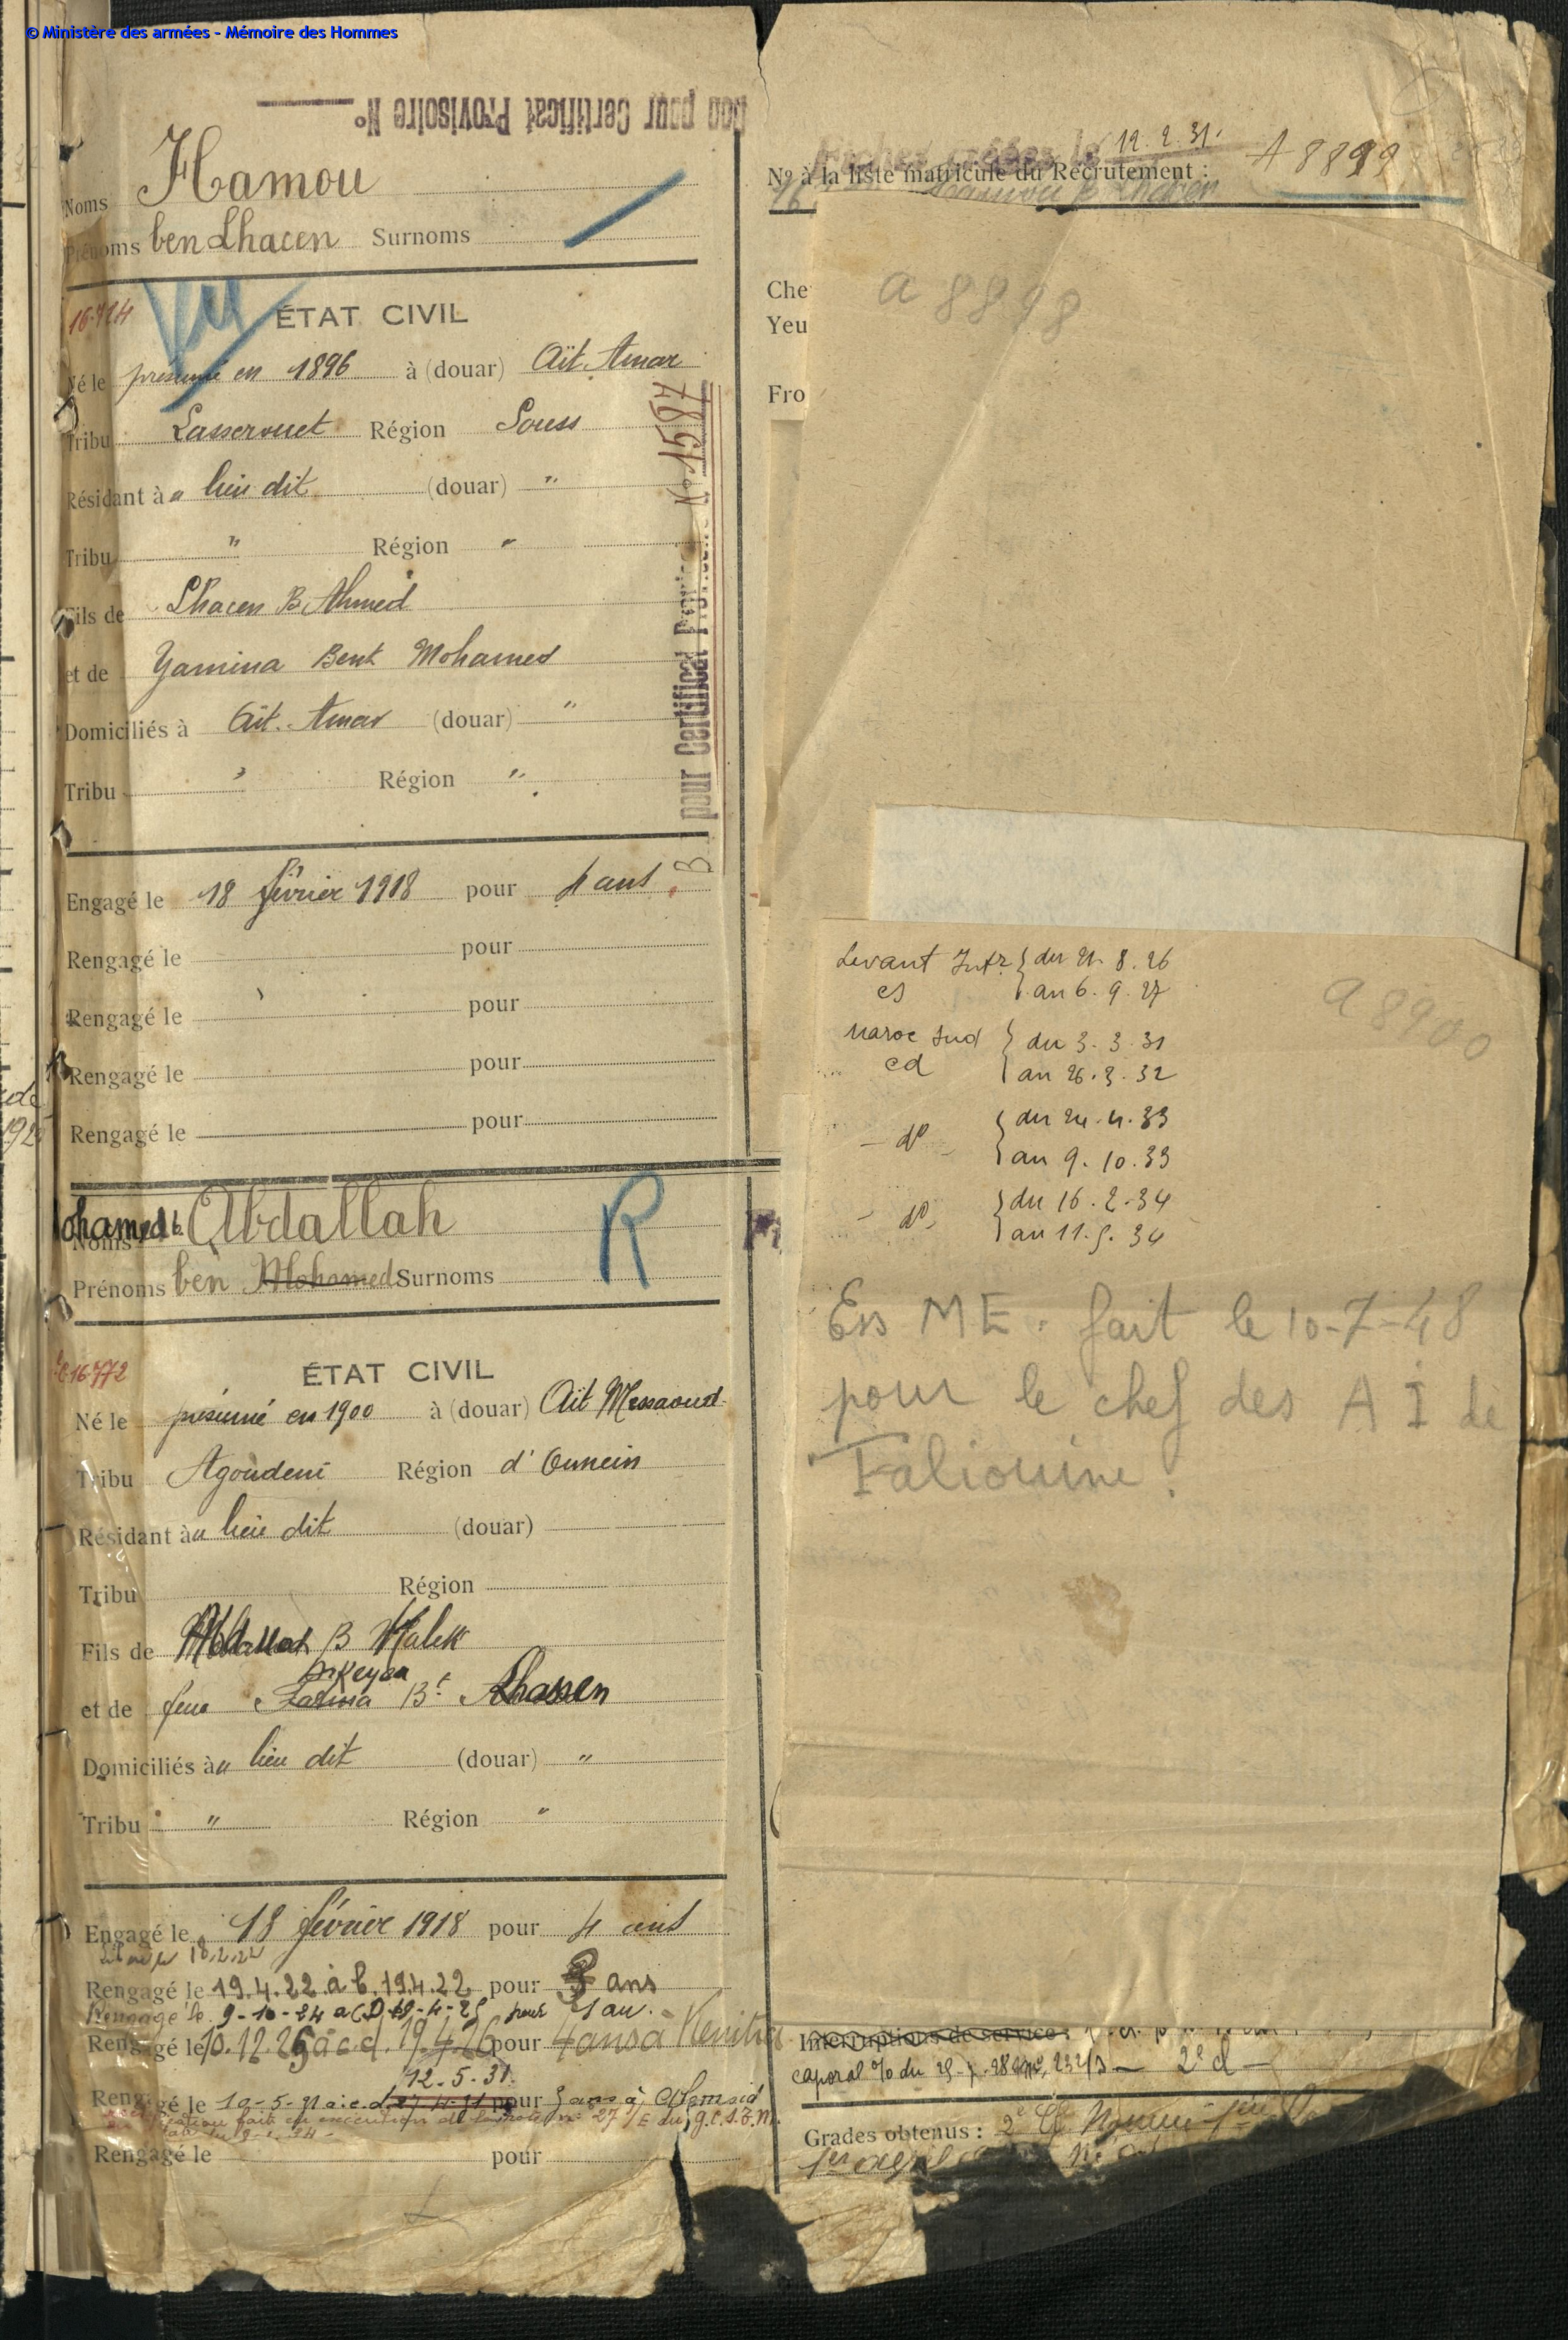 © Ministère des armées - Mémoire des Hommes
Bon pour Certificat Provisoire N°
Noms Hamou
Prénoms ben Lhacen Surnoms
16.724
Vu
ÉTAT CIVIL
Né le présumé en 1896 à (douar) Aït Amar
Tribu Lasserouet Région Souss
Résidant à " lieu dit (douar) "
Tribu " Région "
Fils de Lhacen B. Ahmed
et de Yamina Bent Mohamed
Domiciliés à Aït. Amar (douar) "
Tribu " Région "
pour Certificat Provisoire N° 1587
Engagé le 18 février 1918 pour 4 ans.
Rengagé le pour
Rengagé le pour
Rengagé le pour
Rengagé le pour
Noms Mohamed b. Abdallah
R
Prénoms ben Mohamed Surnoms
16.772
ÉTAT CIVIL
Né le présumé en 1900 à (douar) Aït Messaoud
Tribu Agoudeni Région d'Ounein
Résidant à " lieu dit (douar)
Tribu Région
Fils de Abdallah B Malek
et de feue Fatma B.t Lhassen
Domiciliés à " lieu dit (douar) "
Tribu " Région "
Engagé le 18 février 1918 pour 4 ans
18.2.22
Rengagé le 19.4.22 à c. 19.4.22 pour 3 ans
Rengagé le 9-10-24 a CD 19-4-25 pour 1 an.
Rengagé le 10.12.25 à c d. 19.4.26 pour 4 ans à Kenitra
12.5.31
Rengagé le 10-5-31 a.c.d. pour 3 ans à
Rengagé le pour
12.2.31.
N° à la liste matricule du Recrutement : A 8899
Hamou b Lhacen
Che
Yeu
Fro
a 8898
Levant
du 21.8.26
es
au 6.9.27
a 8900
Maroc Sud
du 3.3.31
cd
au 26.3.32
— d° —
du 24.4.33
au 9.10.33
— d°
du 16.2.34
au 11.5.34
Ess ME. fait le 10-7-48
pour le chef des A I de
Taliouine.
Interruptions de service :
caporal — 2e cl —
Grades obtenus : 2e Cl
1er avril